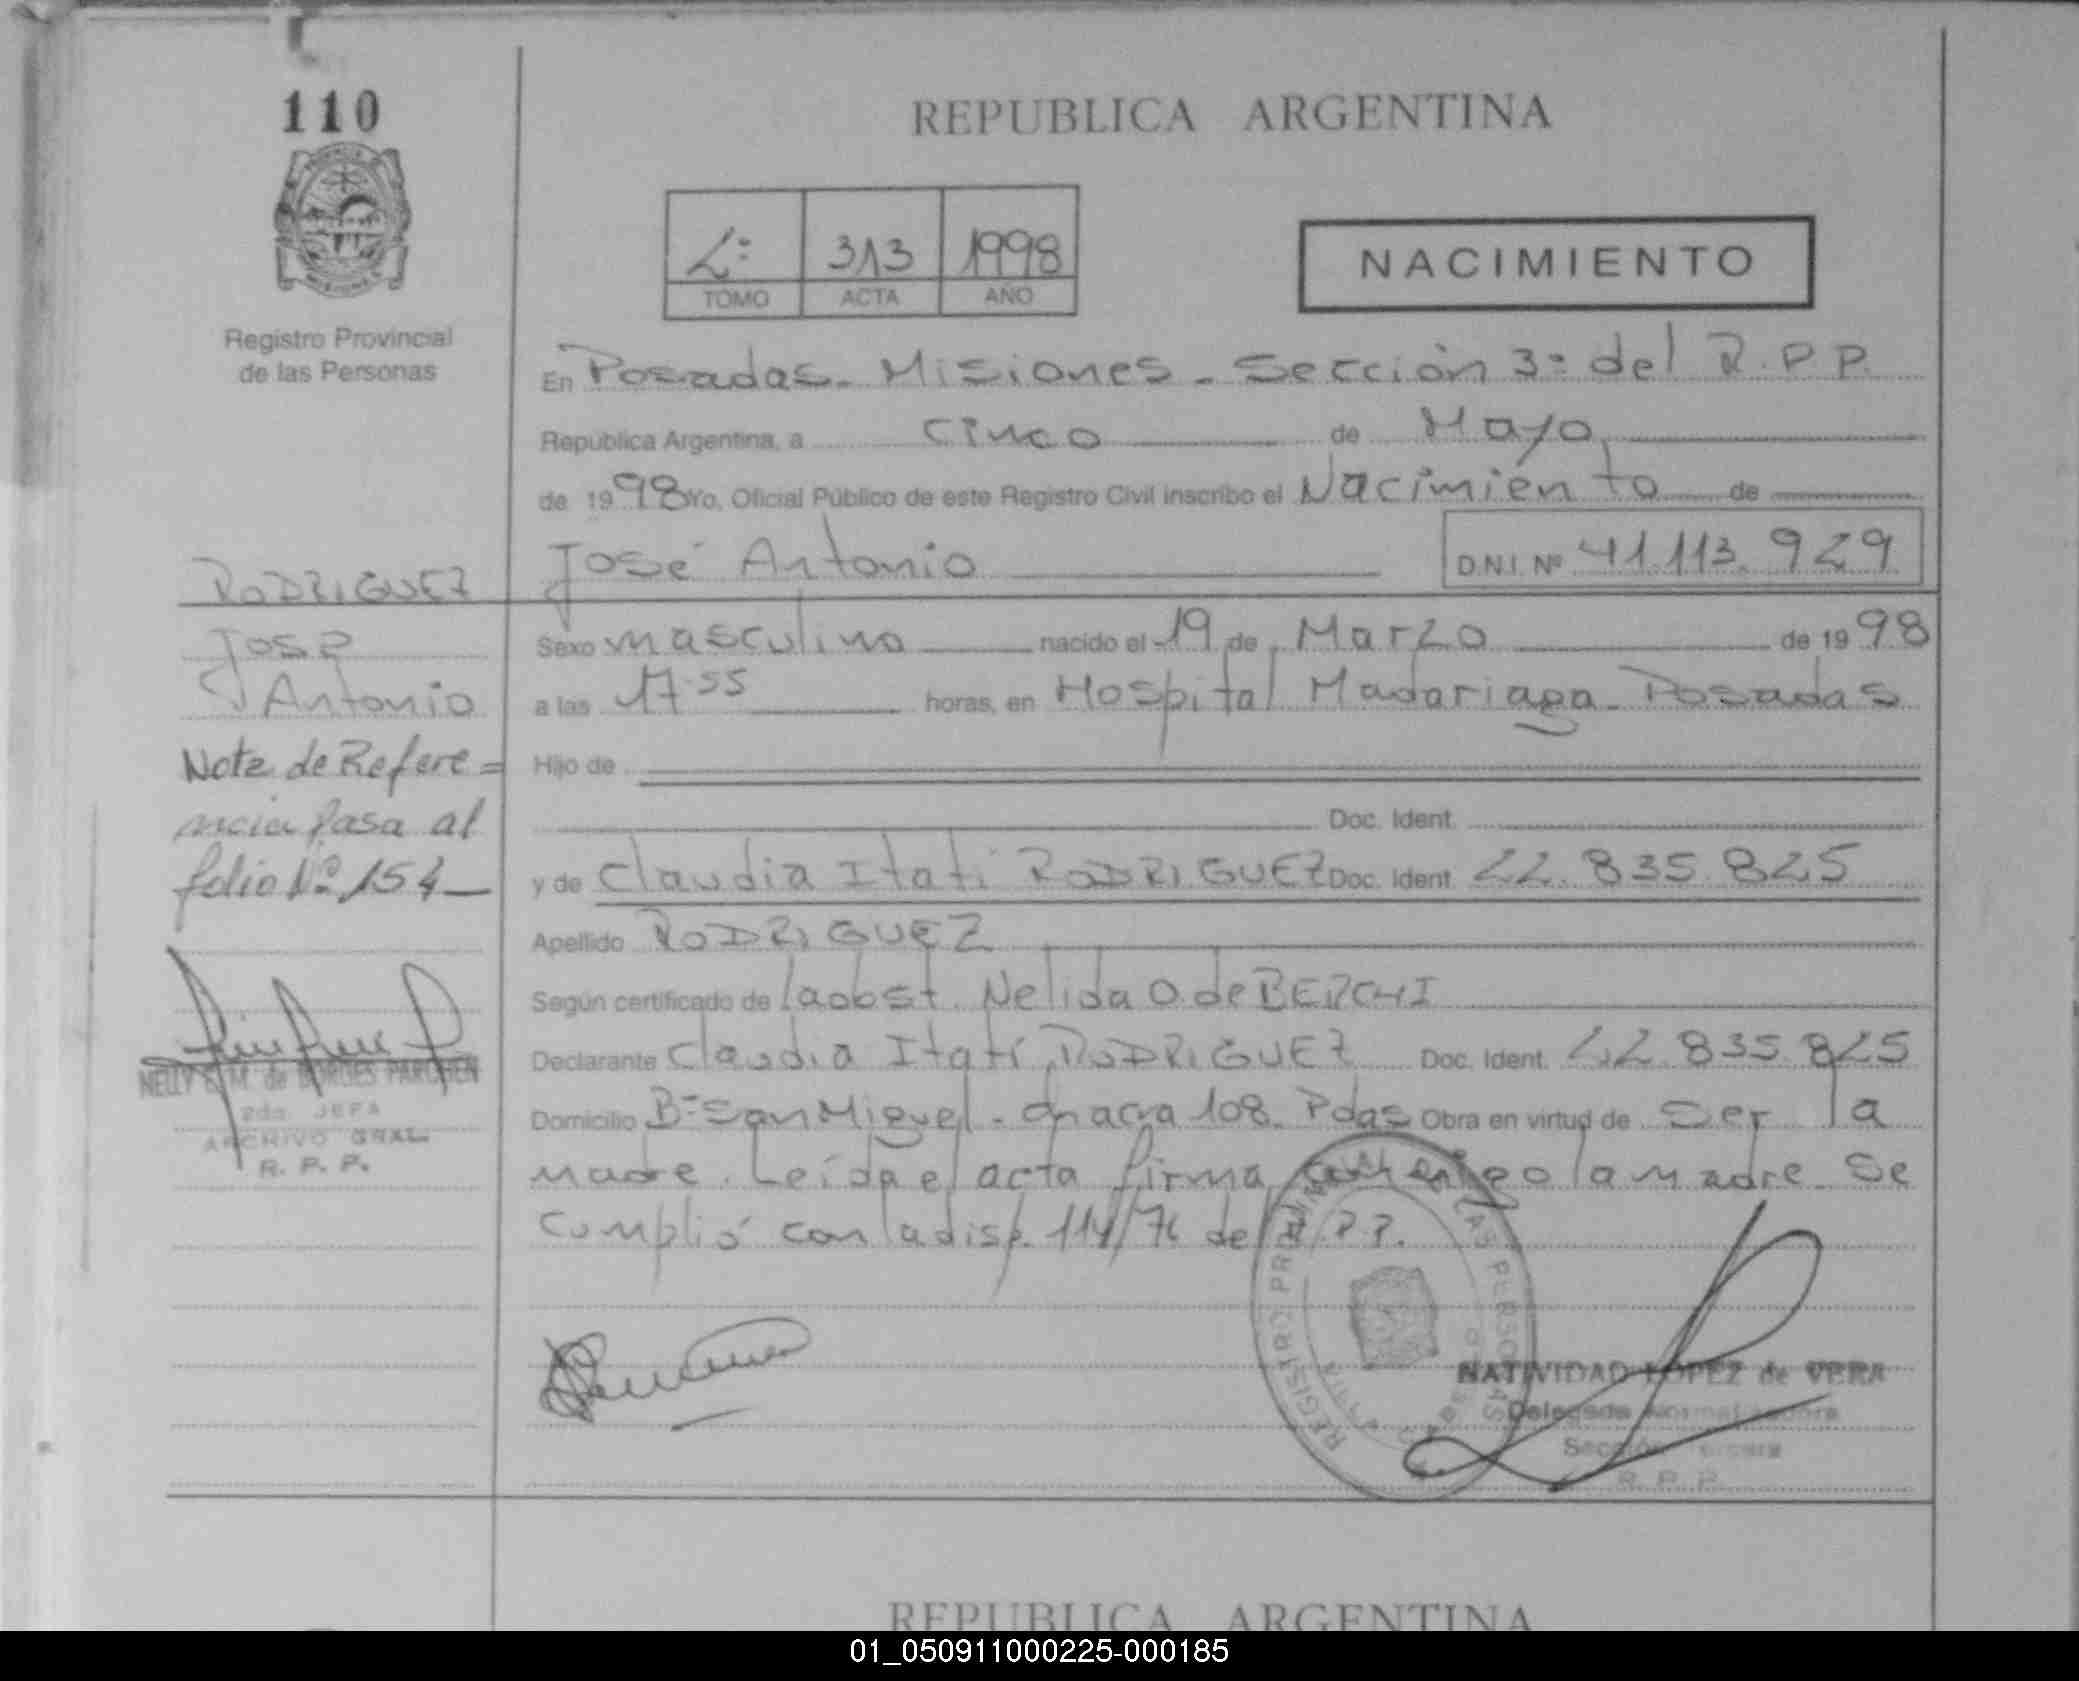 110
REPUBLICA ARGENTINA
2º 313 1998
TOMO ACTA AÑO
NACIMIENTO
Registro Provincial
de las Personas
En Posadas - Misiones - Sección 3º del R.P.P.
Republica Argentina, a cinco de Mayo
de 1998 Yo, Oficial Público de este Registro Civil inscribo el Nacimiento de
José Antonio D.N.I. Nº 41.113.929
RODRIGUEZ
José
Antonio
Sexo masculino nacido el 19 de Marzo de 1998
a las 17.55 horas, en Hospital Madariaga - Posadas
Nota de Refere=
ncia Pasa al
folio Nº 154
Hijo de
Doc. Ident.
y de Claudia Itatí RODRIGUEZ Doc. Ident. 22.835.825
Apellido RODRIGUEZ
Según certificado de la obst. Nelida O. de BERCHI
Declarante Claudia Itatí RODRIGUEZ Doc. Ident. 22.835.825
Domicilio Bº San Miguel - chacra 108. Pdas Obra en virtud de Ser la
madre. Leída el acta firma conmigo la madre. Se
cumplió con la disp. 114/76 del R.P.P.
NELLY de BORDES
2da. JEFA
ARCHIVO GRAL.
R. P. P.
REGISTRO PROVINCIAL DE LAS PERSONAS
NATIVIDAD LOPEZ de VERA
Delegada Normalizadora
Sección Tercera
R. P. P.
REPUBLICA ARGENTINA
01_050911000225-000185